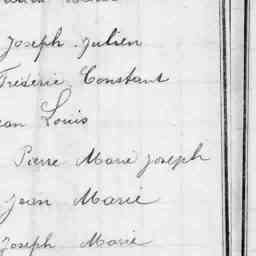 Joseph Julien
Fréderic Constant
ean Louis
Pierre Marie Joseph
Jean Marie
Joseph Marie